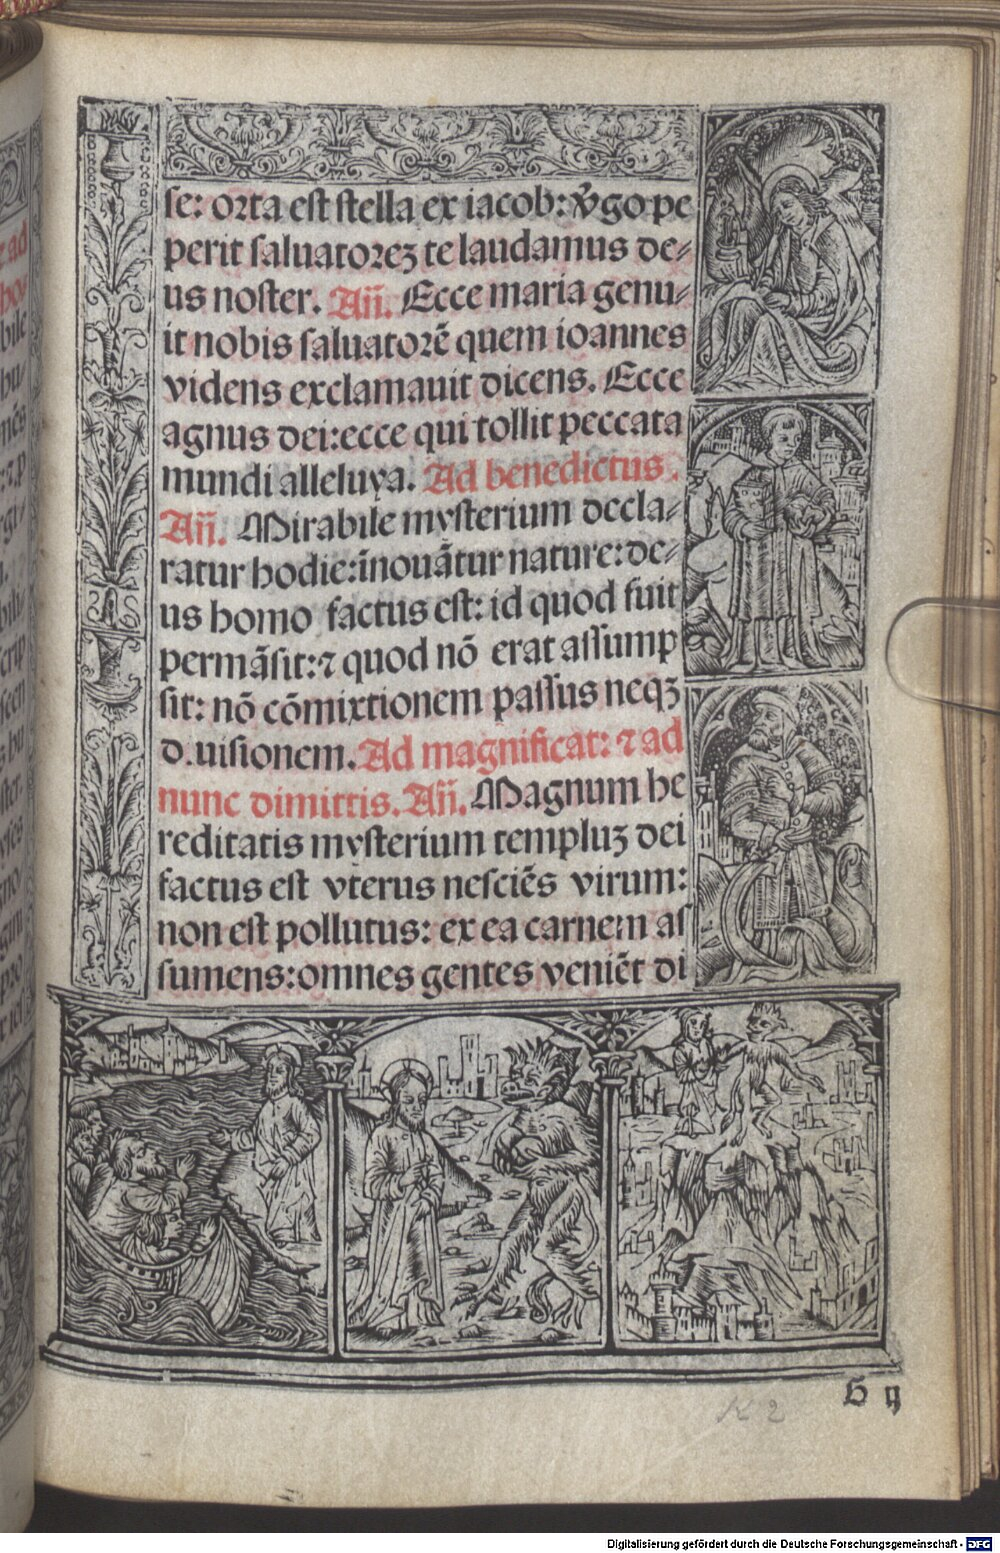 se: orta est stella ex iacob: v̄go pe
perit saluatoreꝫ te laudamus de-
us noster. Añ. Ecce maria genu-
it nobis saluatorē quem ioannes
videns exclamauit dicens. Ecce
agnus dei: ecce qui tollit peccata
mundi alleluya. Ad benedictus.
Añ. Mirabile mysterium decla-
ratur hodie: īnouātur nature: de-
us homo factus est: id quod fuit
permāsit: ⁊ quod nō erat assump
sit: nō cōmixtionem passus neqꝫ
d.uisionem. Ad magnificat: ⁊ ad
nunc dimittis. Añ. Magnum he
reditatis mysterium templuꝫ dei
factus est vterus nesciēs virum:
non est pollutus: ex ea carnem as
sumens: omnes gentes veniēt di
K 2
Digitalisierung gefördert durch die Deutsche Forschungsgemeinschaft - DFG